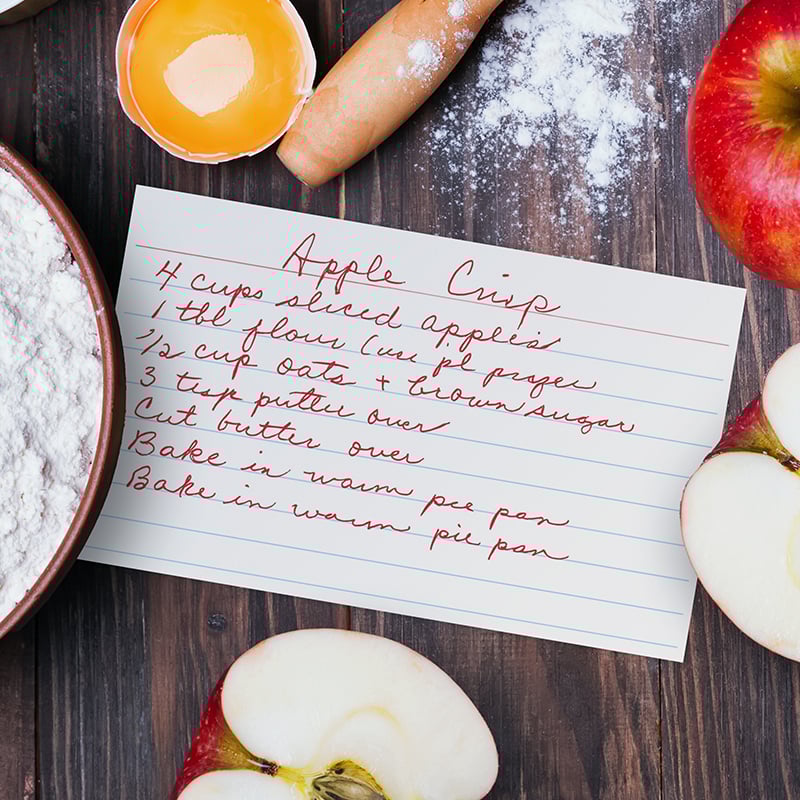 Apple Crisp
4 cups sliced apples
1 tbl flour (use pl
1/2 cup oats + brown sugar
3 tisp putter over
Cut butter over
Bake in warm pce pan
Bake in warm pie pan